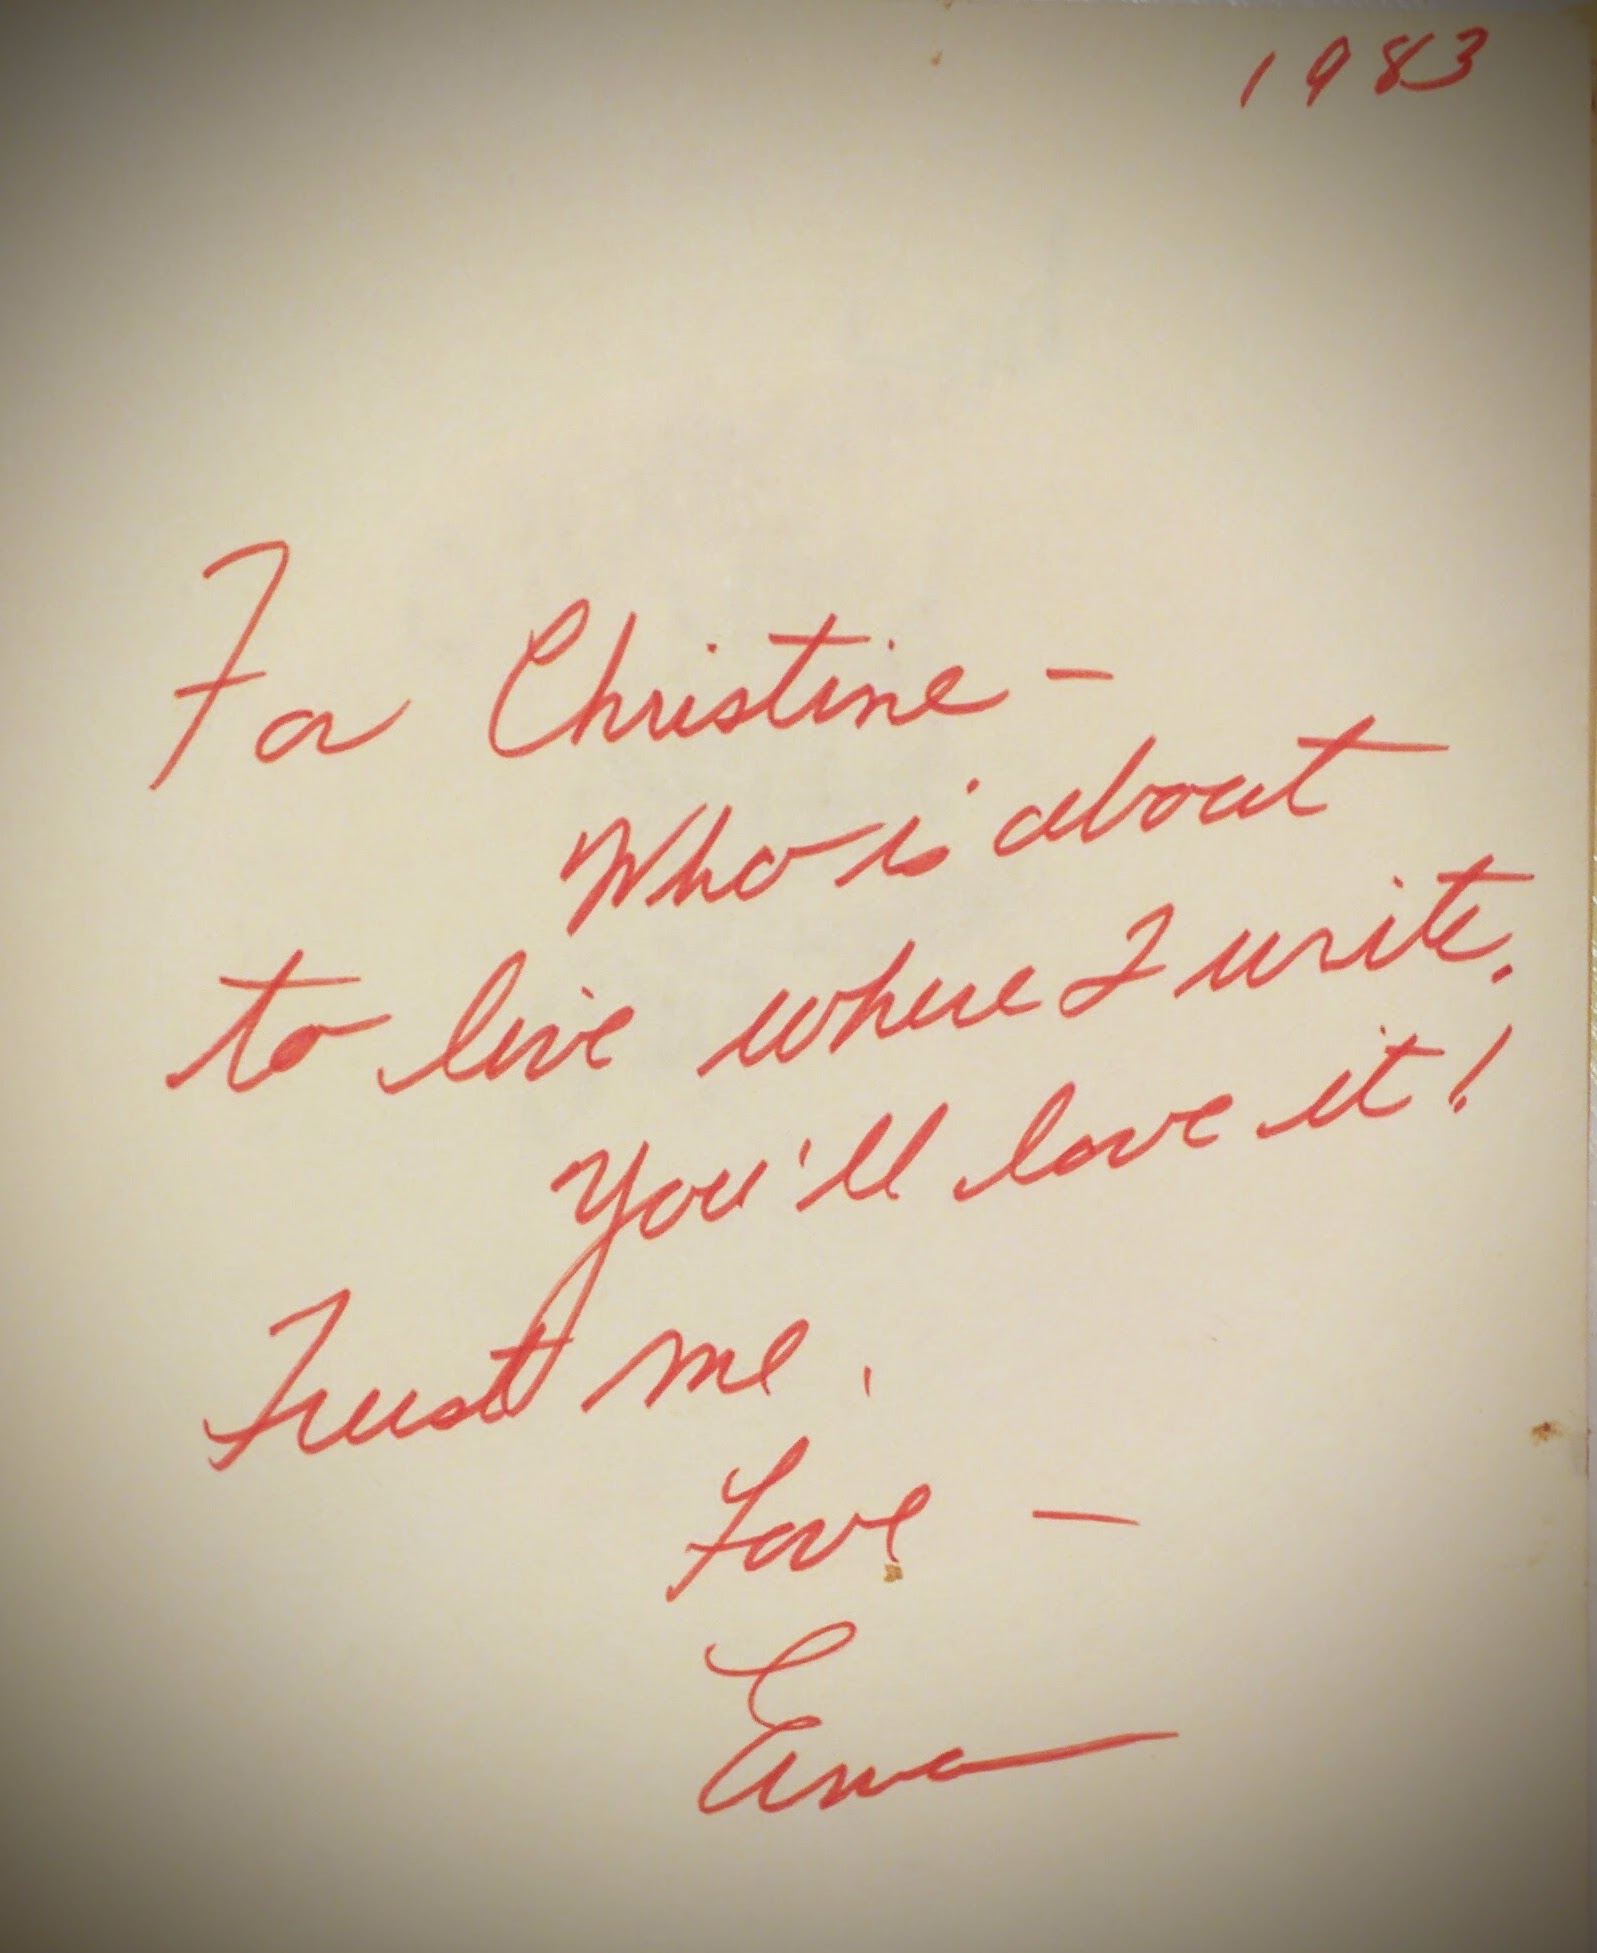 1983
For Christine —
Who is about
to live where I write.
You'll love it!
Trust me.
Love —
Erma